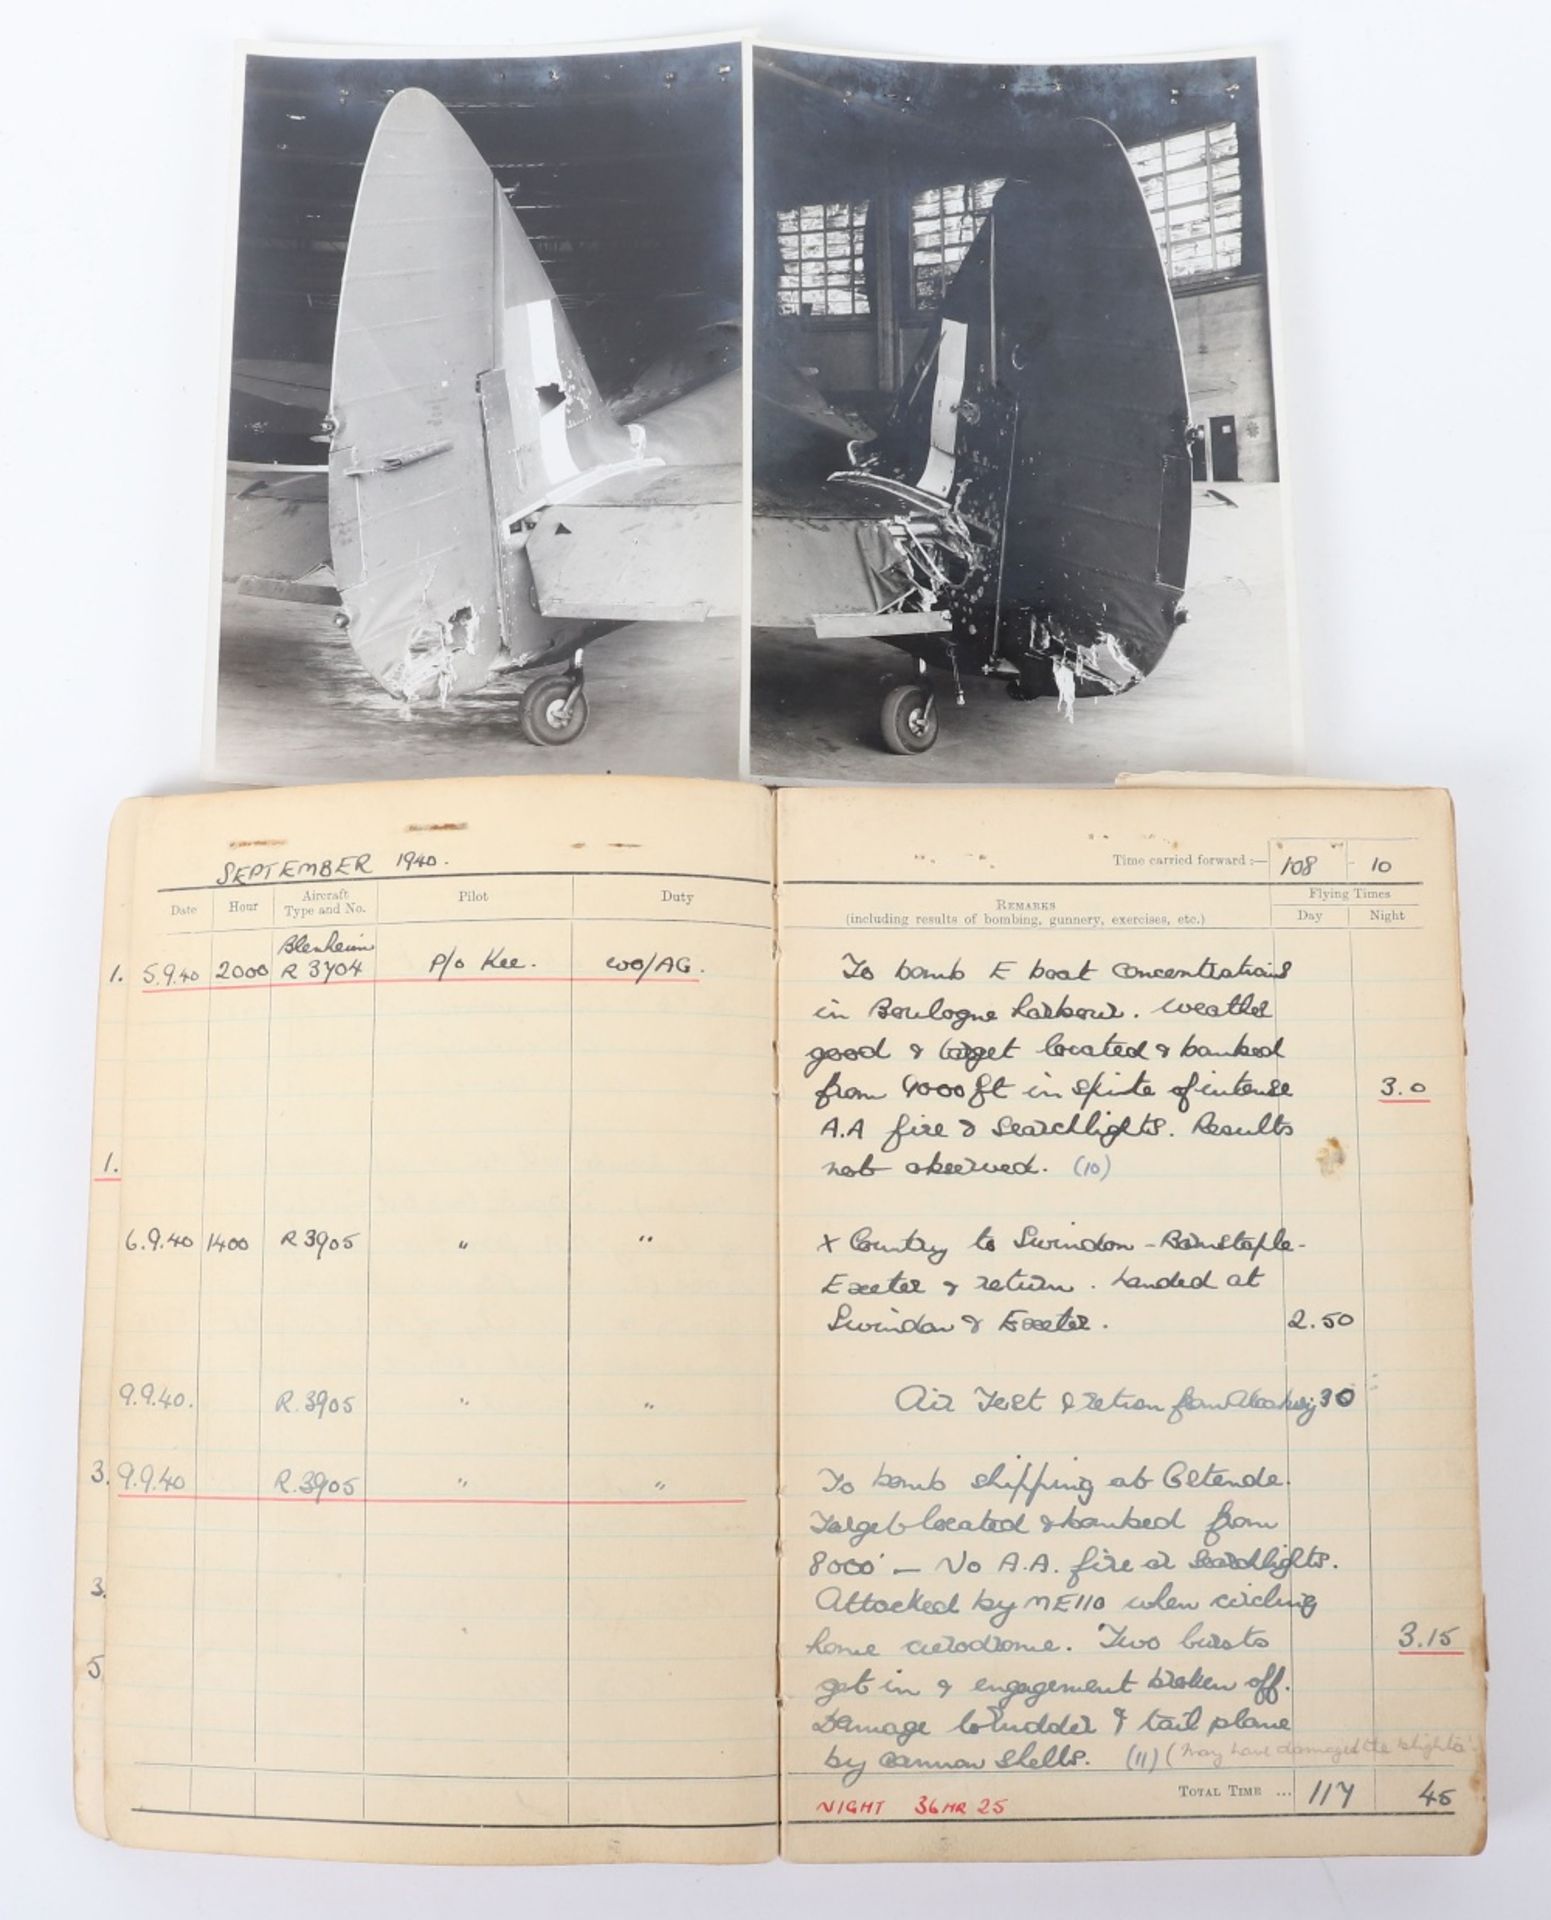 SEPTEMBER 1940.
Date Hour Aircraft Type and No. Pilot Duty
1. 5.9.40 2000 Blenheim R 3704 P/o Kee. WO/AG.
1.
6.9.40 1400 R 3905 " "
9.9.40. R.3905 " "
3. 9.9.40 R.3905 " "
3.
5
Time carried forward :— 108 - 10
Remarks
(including results of bombing, gunnery, exercises, etc.)
Flying Times
Day Night
To bomb E boat concentrations
in Boulogne harbour. Weather
good & target located & bombed
from 9000 ft in spite of intense 3.0
A.A fire & searchlights. Results
not observed. (10)
X Country to Swindon - Barnstaple -
Exeter & return. Landed at
Swindon & Exeter. 2.50
Air Test & return from 30
To bomb shipping at Ostende.
Target located & bombed from
8000' — No A.A. fire or searchlights.
Attacked by ME110 when circling
home aerodrome. Two bursts 3.15
get in & engagement broken off.
Damage to rudder & tail plane
by cannon shells. (11) (may have damaged the
Total Time ... 117 45
NIGHT 36 HR 25